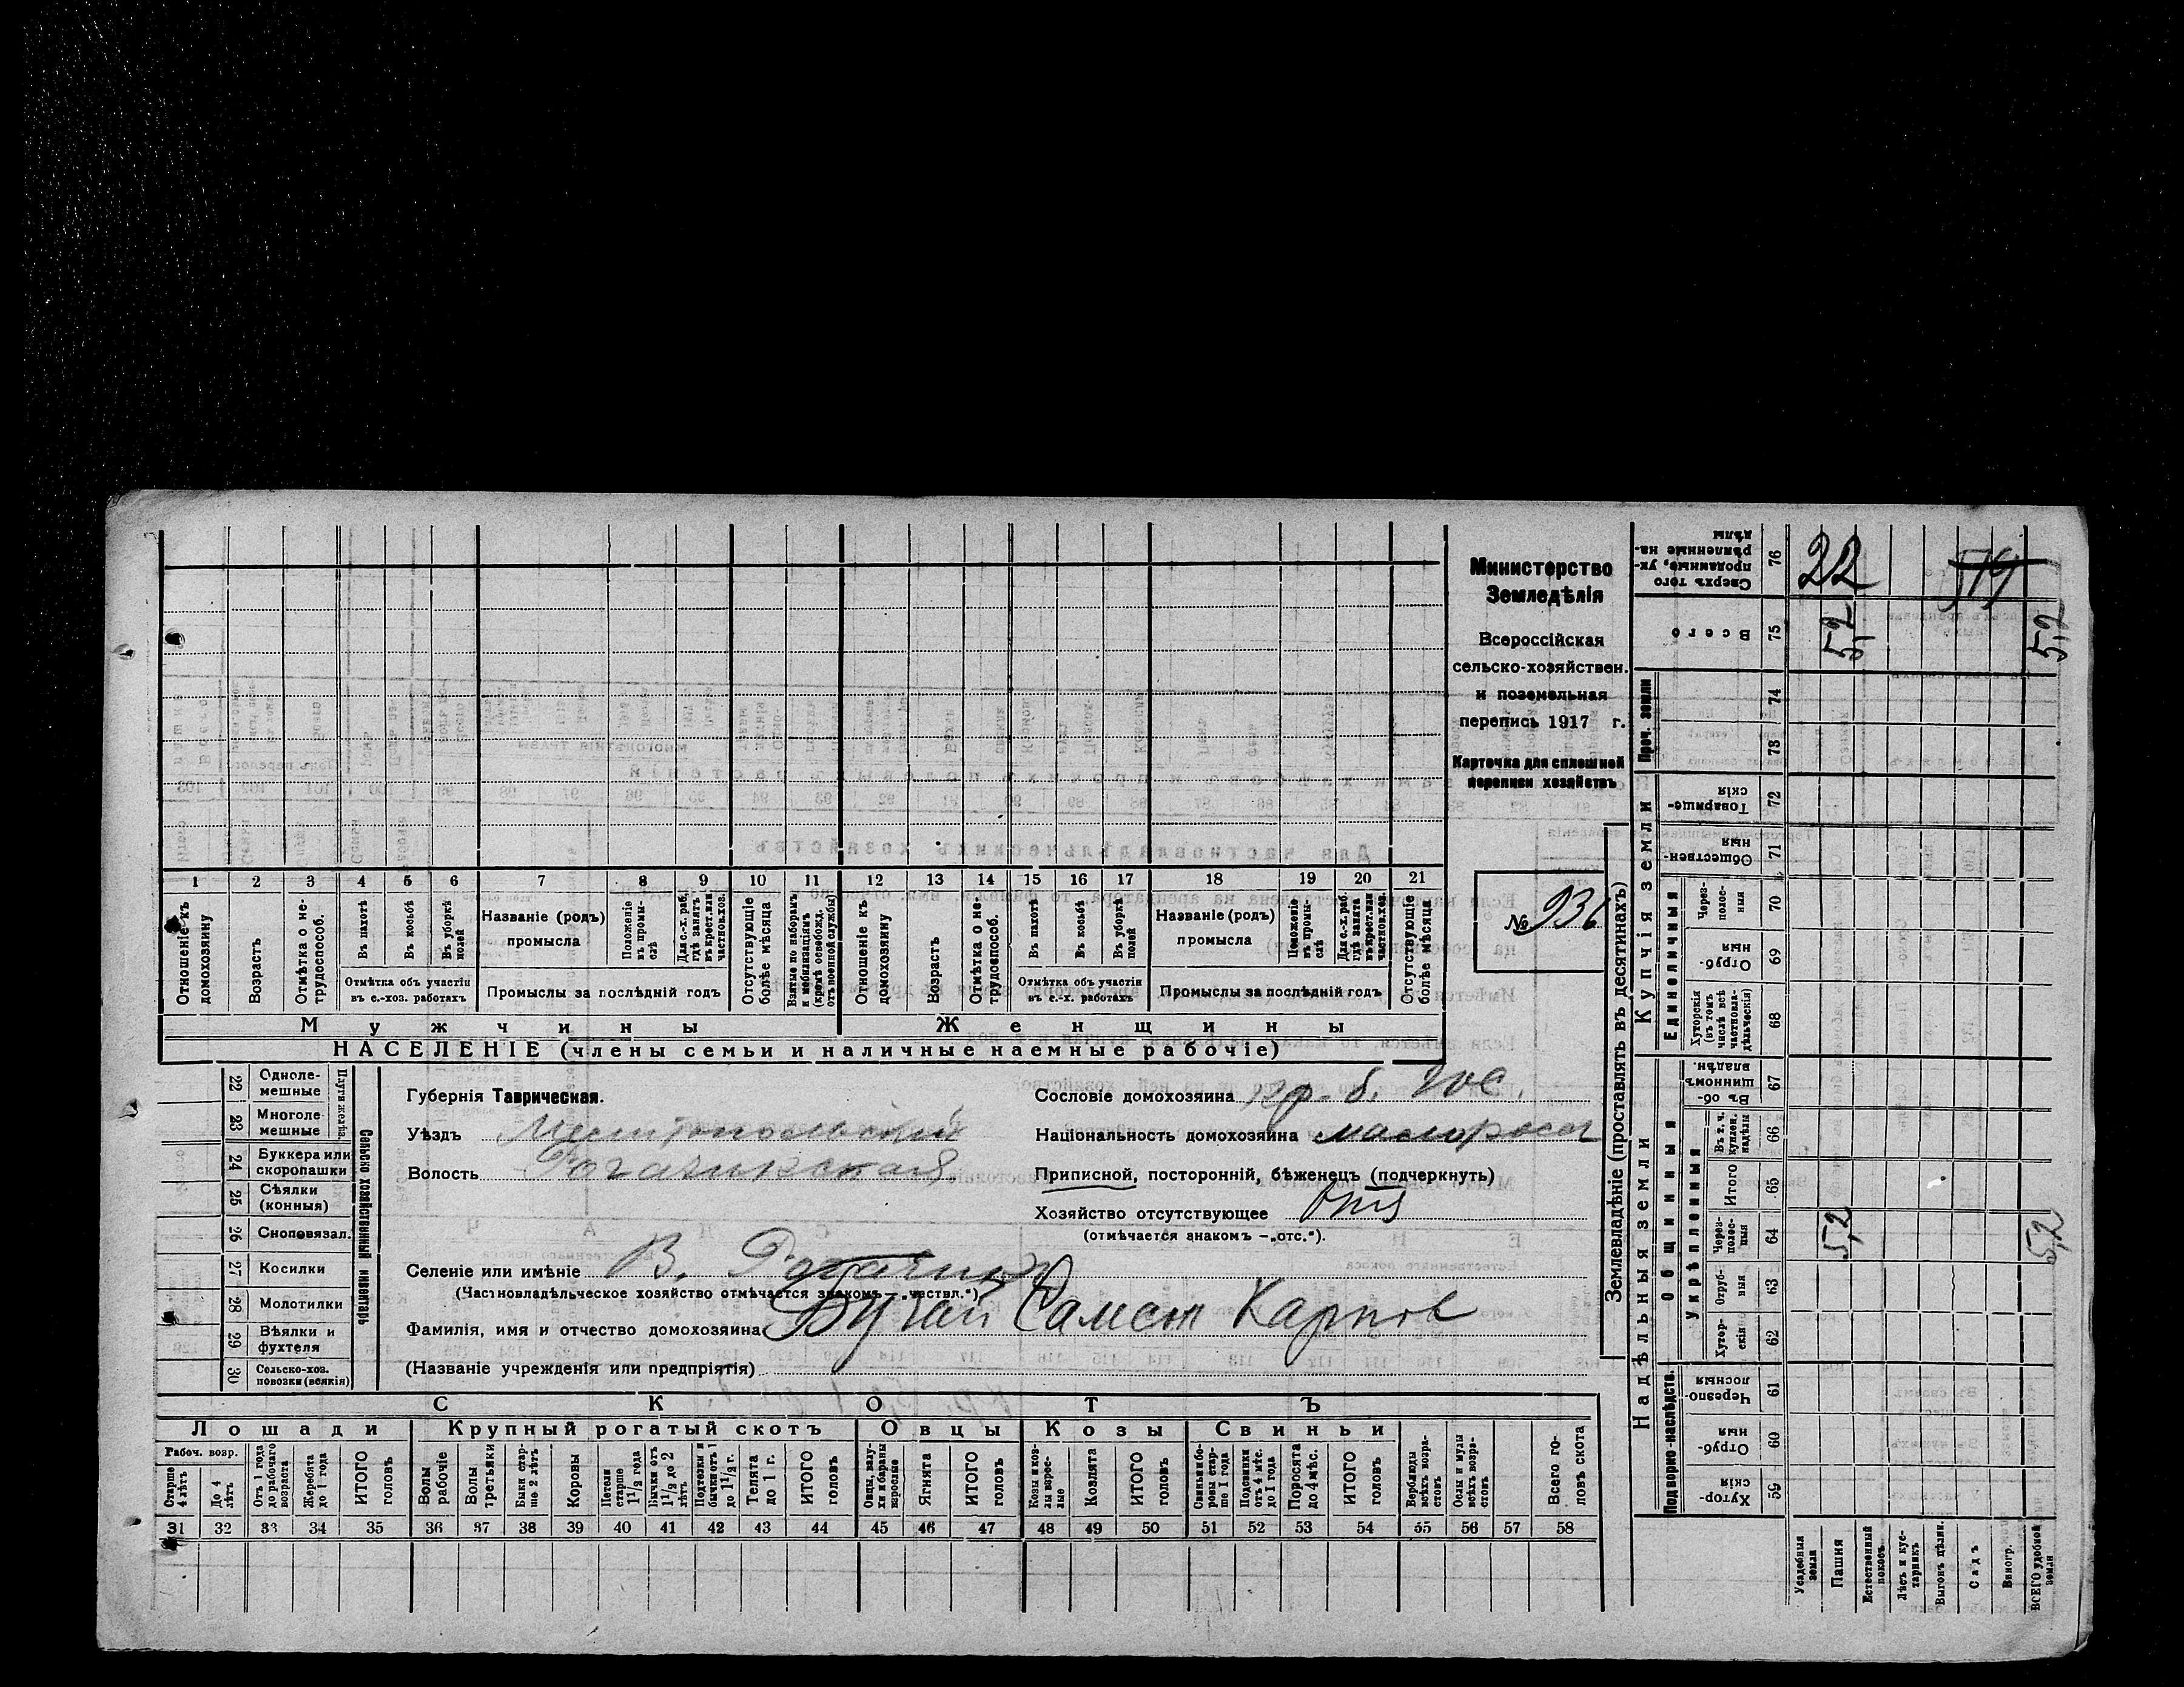 Министерство
Земледѣлія
Всероссійская
сельско-хозяйствен.
и поземельная
перепись 1917 г.
Карточка для сплошной
переписи хозяйствъ
№ 936
1 2 3 4 5 6 7 8 9 10 11 12 13 14 15 16 17 18 19 20 21
Отношеніе къ домохозяину
Возрастъ
Отмѣтка о нетрудоспособ.
Въ пахотѣ
Въ косьбѣ
Въ уборкѣ полей
Отмѣтка объ участіи въ с.-хоз. работахъ
Названіе (родъ) промысла
Положеніе въ промыслѣ
Для с.-х. раб. гдѣ занятъ въ крест. или частнов. хоз.
Промыслы за послѣдній годъ
Отсутствующіе болѣе мѣсяца
Взятые по наборамъ и мобилизаціямъ (кромѣ освобожд. отъ военной службы)
Отношеніе къ домохозяину
Возрастъ
Отмѣтка о нетрудоспособ.
Въ пахотѣ
Въ косьбѣ
Въ уборкѣ полей
Отмѣтка объ участіи въ с.-х. работахъ
Названіе (родъ) промысла
Положеніе въ промыслѣ
Для с.-х. раб. гдѣ занята въ крест. или частнов. хоз.
Промыслы за послѣдній годъ
Отсутствующіе болѣе мѣсяца
Мужчины Женщины
НАСЕЛЕНІЕ (члены семьи и наличные наемные рабочіе)
Сельско-хозяйственный инвентарь
Плуги желѣз.
22 Однолемешные
23 Многолемешные
24 Буккера или скоропашки
25 Сѣялки (конныя)
26 Сноповязал.
27 Косилки
28 Молотилки
29 Вѣялки и фухтеля
30 Сельско-хоз. повозки (всякія)
Губернія Таврическая.
Уѣздъ Мелитопольскій
Волость Рогачикская
Селеніе или имѣніе В. Рогачик
(Частновладѣльческое хозяйство отмѣчается знакомъ — „частвл.“)
Фамилія, имя и отчество домохозяина Бугай Самсон Карпов
(Названіе учрежденія или предпріятія)
Сословіе домохозяина
Національность домохозяина малоросс
Приписной, посторонній, бѣженецъ (подчеркнуть)
Хозяйство отсутствующее отс
(отмѣчается знакомъ — „отс.“).
СКОТЪ
Лошади Крупный рогатый скотъ Овцы Козы Свиньи
Рабоч. возр.
Старше 4 лѣтъ
До 4 лѣтъ
Отъ 1 года до рабочаго возраста
Жеребята до 1 года
ИТОГО головъ
Волы рабочіе
Волы третьяки
Быки старше 2 лѣтъ
Коровы
Нетели старше 1 1/2 года
Бычки отъ 1 1/2 до 2 лѣтъ
Подтелки и бычки отъ 1 до 1 1/2 г.
Телята до 1 г.
ИТОГО головъ
Овцы, валухи и бараны взрослые
Ягнята
ИТОГО головъ
Козы и козлы взрослые
Козлята
ИТОГО головъ
Свиньи и боровы старше 1 года
Подсвинки отъ 4 мѣс. до 1 года
Поросята до 4 мѣс.
ИТОГО головъ
Верблюды всѣхъ возрастовъ
Ослы и мулы всѣхъ возрастовъ
Всего головъ скота
31 32 33 34 35 36 37 38 39 40 41 42 43 44 45 46 47 48 49 50 51 52 53 54 55 56 57 58
Землевладѣніе (проставлять въ десятинахъ)
Купчія земли
Надѣльныя земли
Сверхъ того проданные, укрѣпленные надѣлы 76 22
Всего 75 5,2 5,2
Проч. земли 74 73
Товарищескія 72
Общественныя 71
Единоличныя
Черезполосныя 70
Отрубныя 69
Хуторскія (въ томъ числѣ всѣ частновладѣльческія) 68
Общинныя
Въ общинномъ владѣн. 67
Укрѣпленныя
Въ т. ч. куплен. надѣлы 66
Итого 65
Черезполосныя 64 5,2 5,2
Отрубныя 63
Хуторскія 62
Подворно-наслѣдств.
Черезполосныя 61
Отрубныя 60
Хуторскія 59
Усадебныя земли
Пашня
Естественный покосъ
Лѣсъ и кустарникъ
Выгонъ цѣлин.
Садъ
Виногр.
ВСЕГО удобной земли